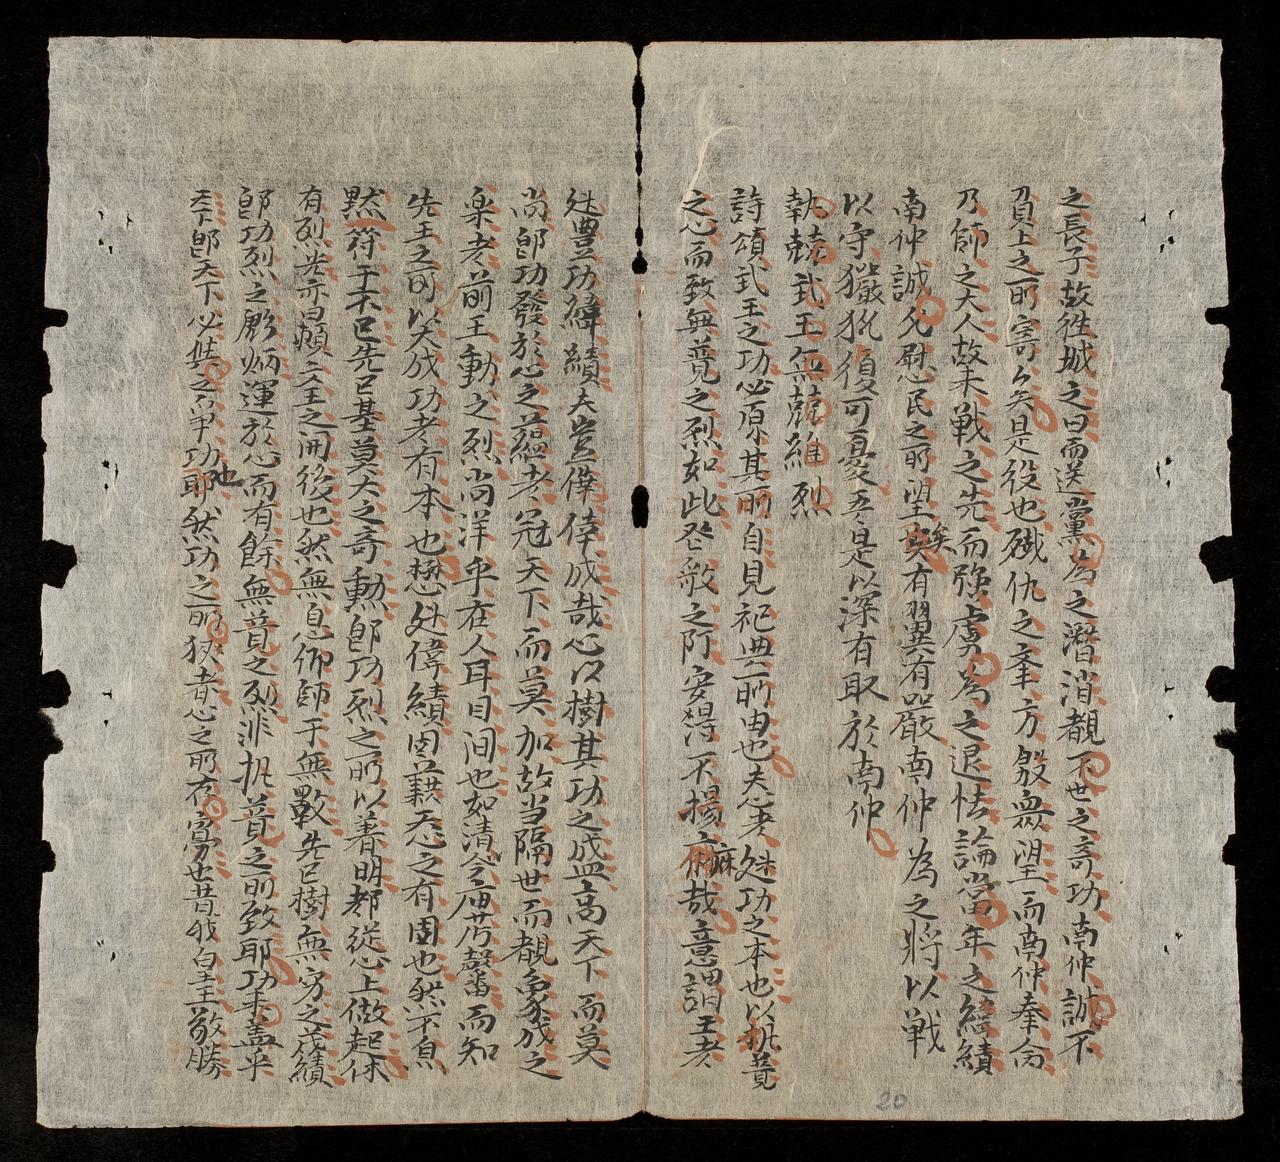 之長子故徃城之日而送黨為之潛消覩不世之奇功南仲誠不
負上之所寄矣是役也殲仇之奉方殷無望而南仲奉命
乃師之大人故未戰之先而強虜為之退怯論當年之經績
南仲誠允慰民之所望矣有翼有嚴南仲為之將以戰
以守玁狁復可憂乎是以深有取於南仲
執競武王無競維烈
詩頌武王之功必原其所自見祀典所由也夫心者迯功之本也以執競
之心而致無競之烈如此祭歌之阿安得不揚麻哉意謂王者
迯豐功緯績夫豈倖成哉心以樹其功之盛高天下而莫
尚即功發於心之蘊者冠天下而莫加故当隔世而覩象成之
楽者前王動之烈尚洋乎在人耳目间也如清令庙聲而知
先王之所以大成功者有本也想处偉績固藉天心之有固也然不負
默符于不已先已基莫大之奇勲即功烈之所以著明都從心上做起休
有烈光亦曰頼文王之開後也然無息仰師于無斁先已樹無穷之茂績
即功烈之彪炳運於心而有餘無競之烈非执競之所致耶功業盖乎
天下即天下必與之爭功耶然功之所狄者心之所存寡也昔我皇王敬勝